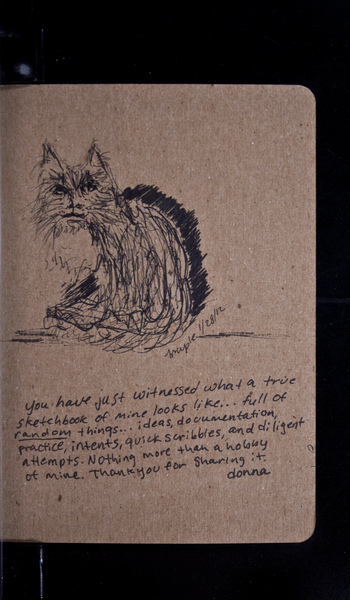 maple 1/28/12
you have just witnessed what a true
sketchbook of mine looks like... full of
random things... ideas, documentation,
practice, intents, quick scribbles, and diligent
attempts. Nothing more than a hobby
of mine. Thank you for sharing it.
donna